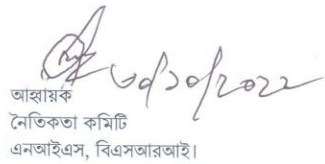 ৩০/১০/২০২২
আহ্বায়ক
নৈতিকতা কমিটি
এনআইএস, বিএসআরআই।